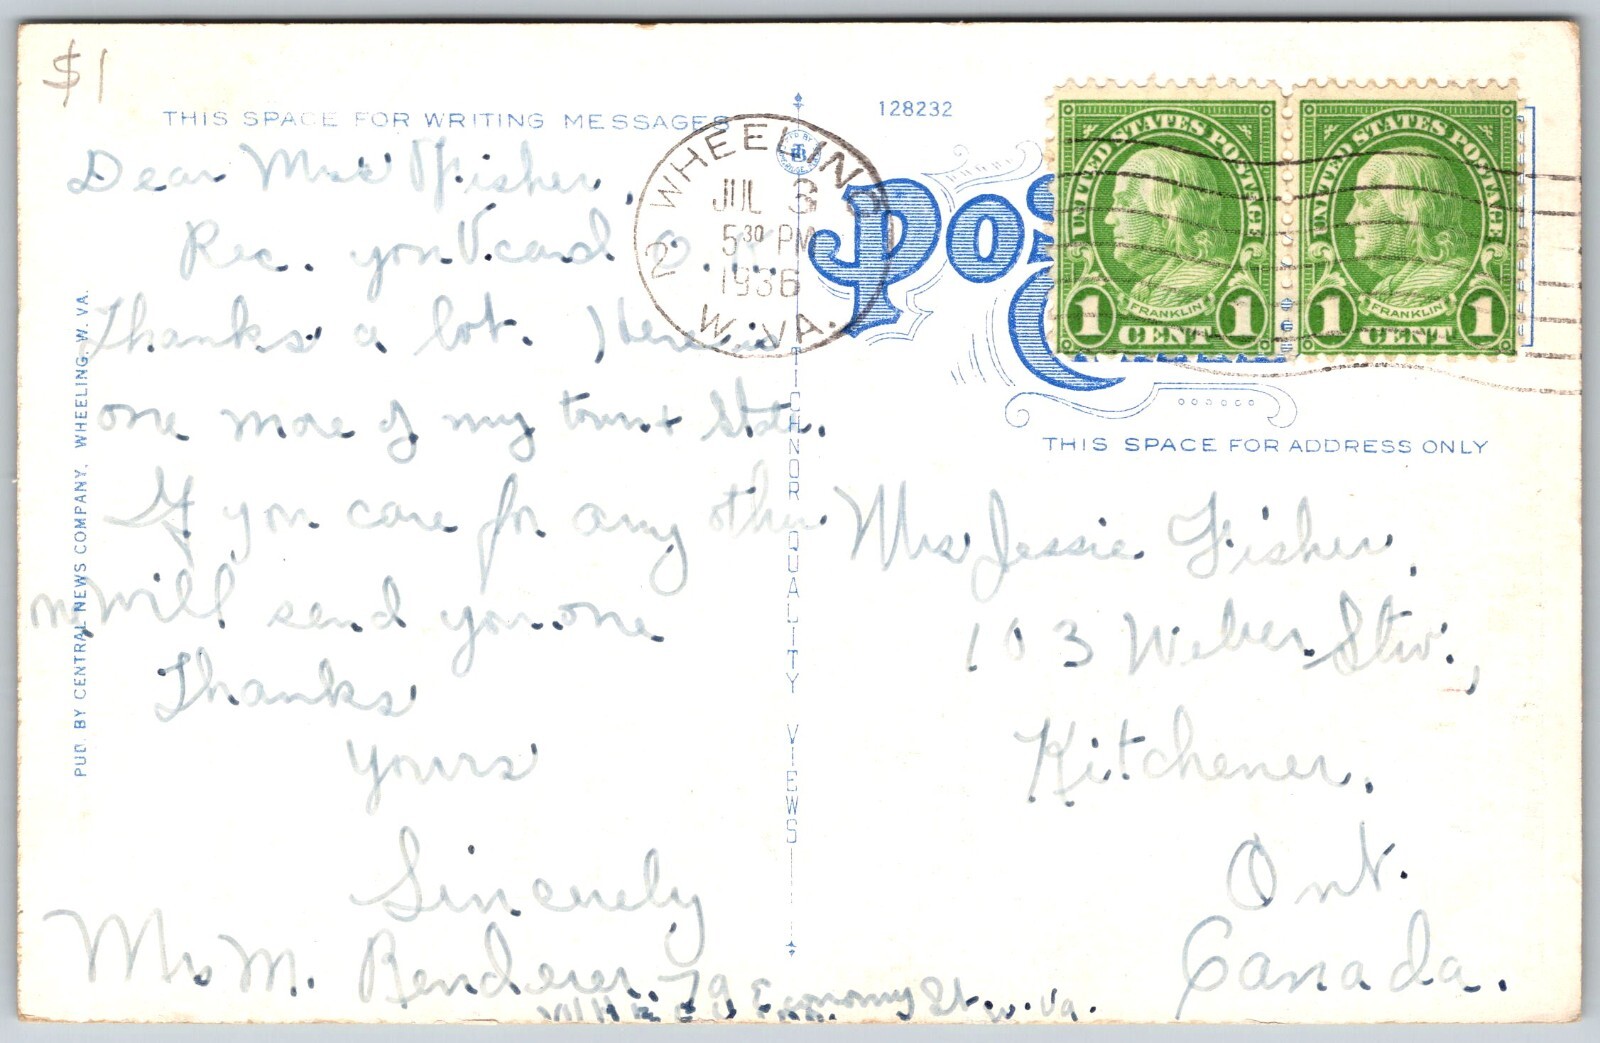 $1
THIS SPACE FOR WRITING MESSAGES
Dear Mrs Fisher,
Rec. your card O.K.
Thanks a lot. Here is
one more of my town & State.
If you care for any other
will send you one
Thanks
Yours
Sincerely
Mrs M. Benderer
Economy St. W. Va.
PUB. BY CENTRAL NEWS COMPANY, WHEELING, W. VA.
TICHNOR QUALITY VIEWS
WHEELING
2
JUL 3
5 30 PM
1936
W. VA.
128232
UNITED STATES POSTAGE
FRANKLIN
1 CENT 1
UNITED STATES POSTAGE
FRANKLIN
1 CENT 1
THIS SPACE FOR ADDRESS ONLY
Mrs Jessie Fisher,
103 Weber St W.,
Kitchener,
Ont.
Canada.